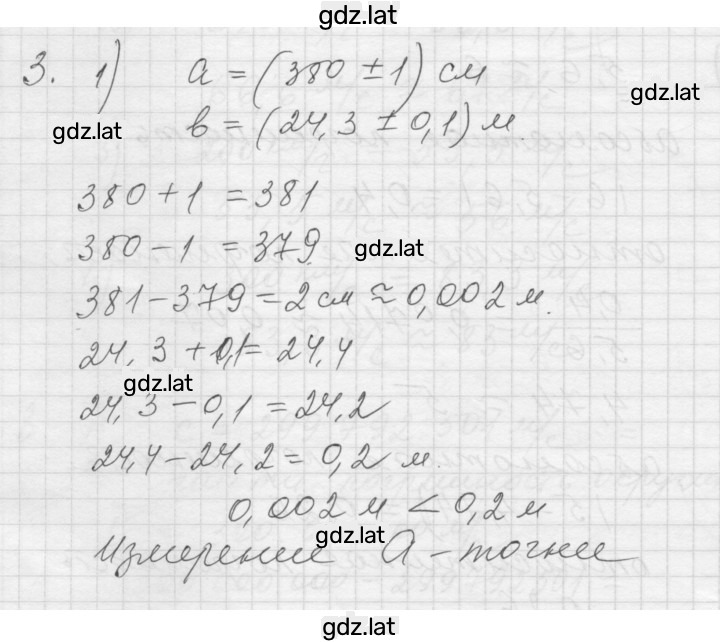 gdz.lat
3. 1) a = (380 ± 1) см
gdz.lat
gdz.lat
в = (24,3 ± 0,1) м
380 + 1 = 381
380 - 1 = 379
gdz.lat
381 - 379 = 2 см ≈ 0,002 м.
24,3 + 0,1 = 24,4
gdz.lat
24,3 - 0,1 = 24,2
24,4 - 24,2 = 0,2 м.
0,002 м < 0,2 м
gdz.lat
Измерение А - точнее
gdz.lat